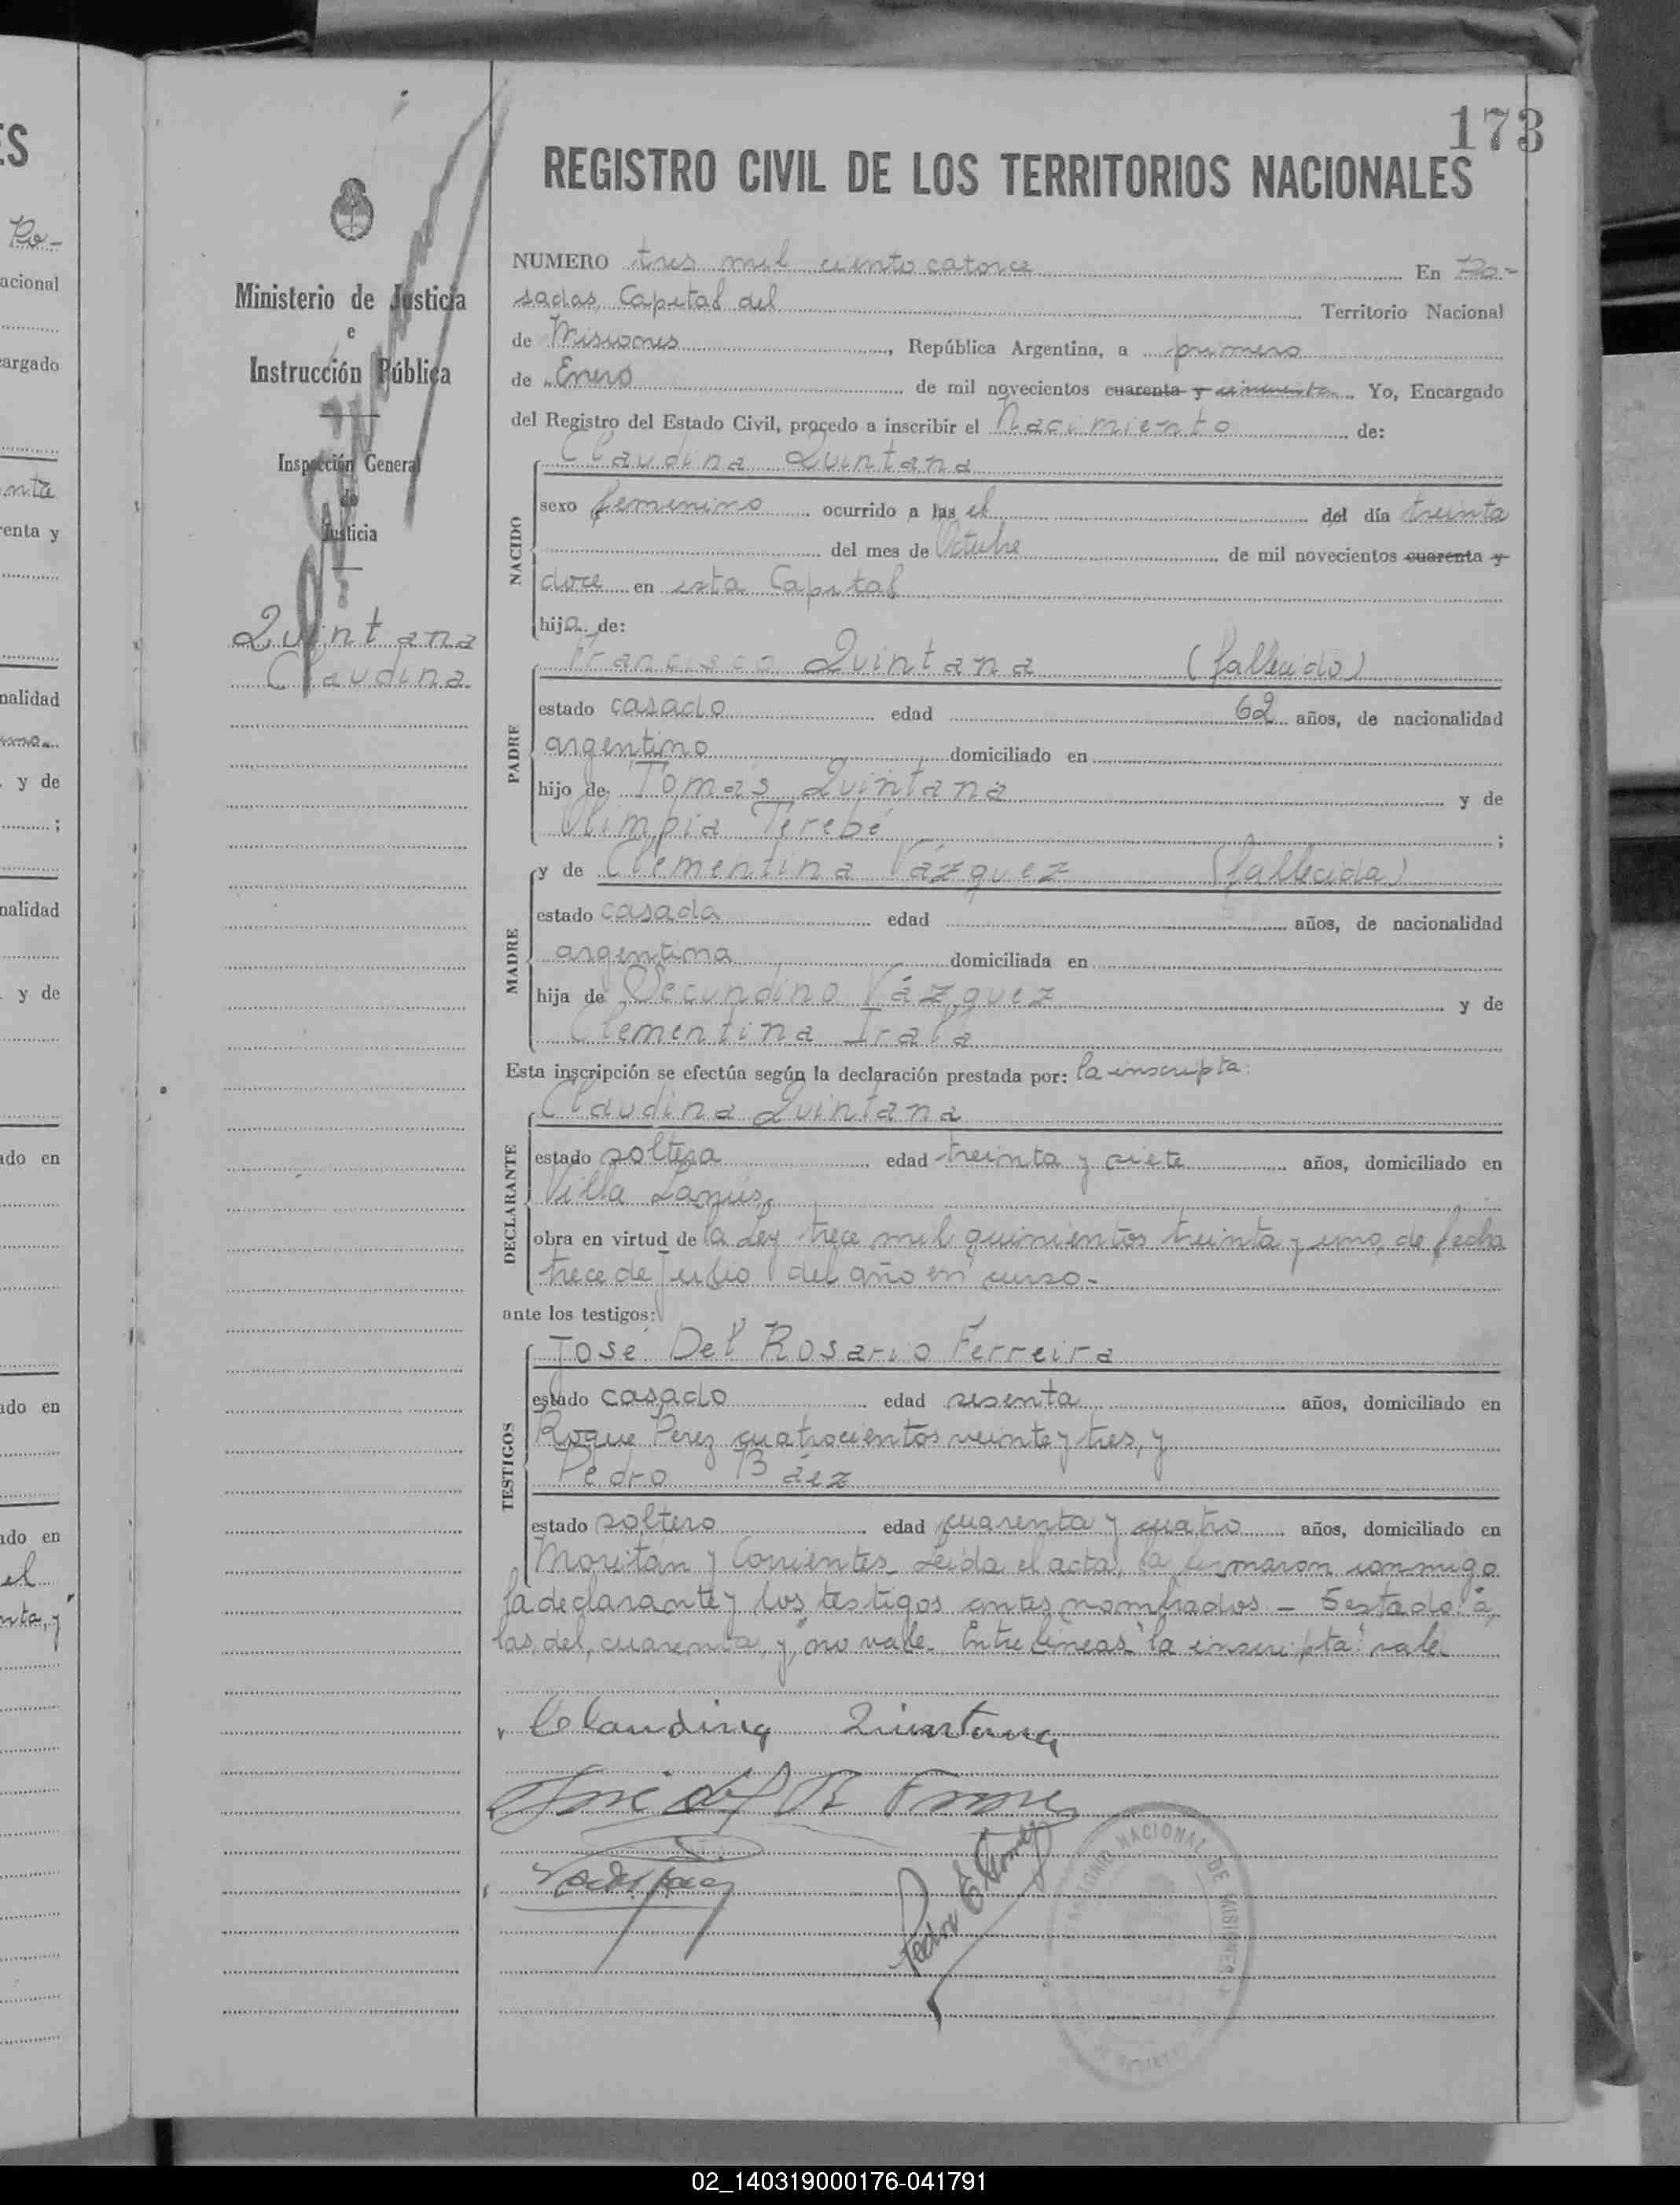 173
REGISTRO CIVIL DE LOS TERRITORIOS NACIONALES
NUMERO tres mil ciento catorce En Po-
sadas, Capital del Territorio Nacional
de Misiones, República Argentina, a primero
de Enero de mil novecientos cuarenta y cincuenta. Yo, Encargado
del Registro del Estado Civil, procedo a inscribir el Nacimiento de:
Claudina Quintana
NACIDO
sexo femenino ocurrido a las el del día treinta
del mes de Octubre de mil novecientos cuarenta y
doce en esta Capital
hija de:
Francisco Quintana (fallecido)
PADRE
estado casado edad 62 años, de nacionalidad
argentino domiciliado en
hijo de Tomás Quintana y de
Olimpia Terebé ;
MADRE
y de Clementina Vázquez (fallecida)
estado casada edad años, de nacionalidad
argentina domiciliada en
hija de Secundino Vázquez y de
Clementina Irala
Esta inscripción se efectúa según la declaración prestada por: la inscripta:
Claudina Quintana
DECLARANTE
estado soltera edad treinta y siete años, domiciliado en
Villa Lanús,
obra en virtud de la Ley trece mil quinientos treinta y uno, de fecha
trece de julio del año en curso.-
ante los testigos:
José Del Rosario Ferreira
TESTIGOS
estado casado edad sesenta años, domiciliado en
Roque Perez cuatrocientos veinte y tres, y
Pedro Báez
estado soltero edad cuarenta y cuatro años, domiciliado en
Moritán y Corrientes. Leída el acta, la firmaron conmigo
la declarante y los testigos antes nombrados - Testado: "a,
las, del, cuarenta, y," no vale. Entre líneas "la inscripta": vale
Claudina Quintana
José del R Ferreira
Ministerio de Justicia
e
Instrucción Pública
Inspección General
de
Justicia
Quintana
Claudina
ES
Po-
acional
cargado
nta
renta y
nalidad
y de
;
nalidad
y de
ado en
ado en
ado en
el
nta, y"
NACIONAL DE MISIONES
02_140319000176-041791